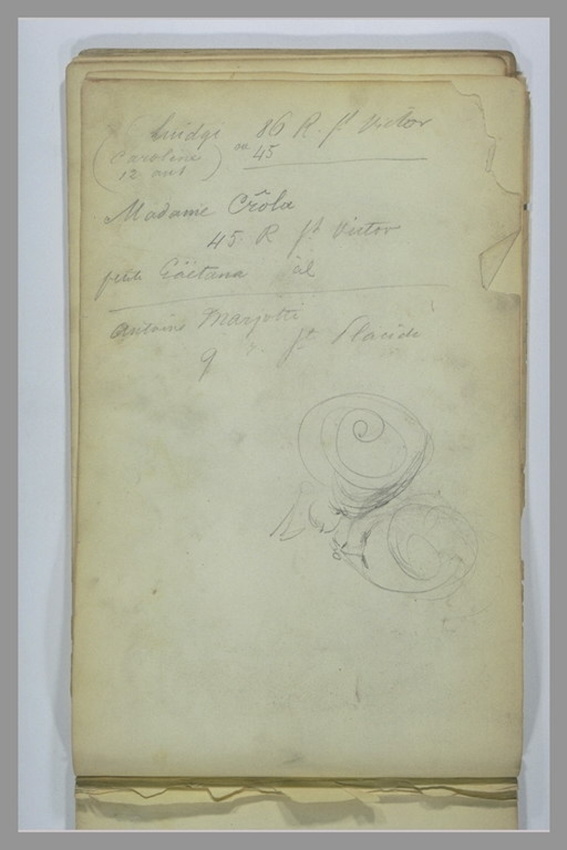 Luidgi 86 R. St Victor
(Caroline ou 45
12 ans)
Madame Crôla
45 R St Victor
petite Gaëtana
Antoine Marzotti
9 r. St Placide